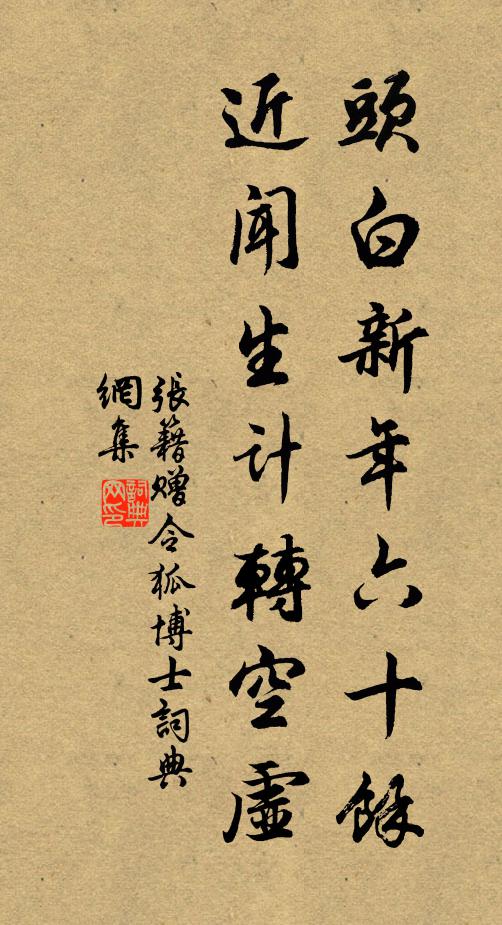 頭白新年六十餘
近聞生計轉空虛
張籍贈令狐博士詞典
網集
詞典網印